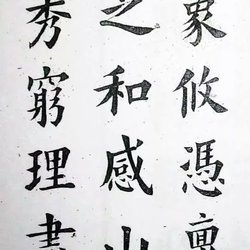 象攸憑稟
之和感山
秀窮理盡